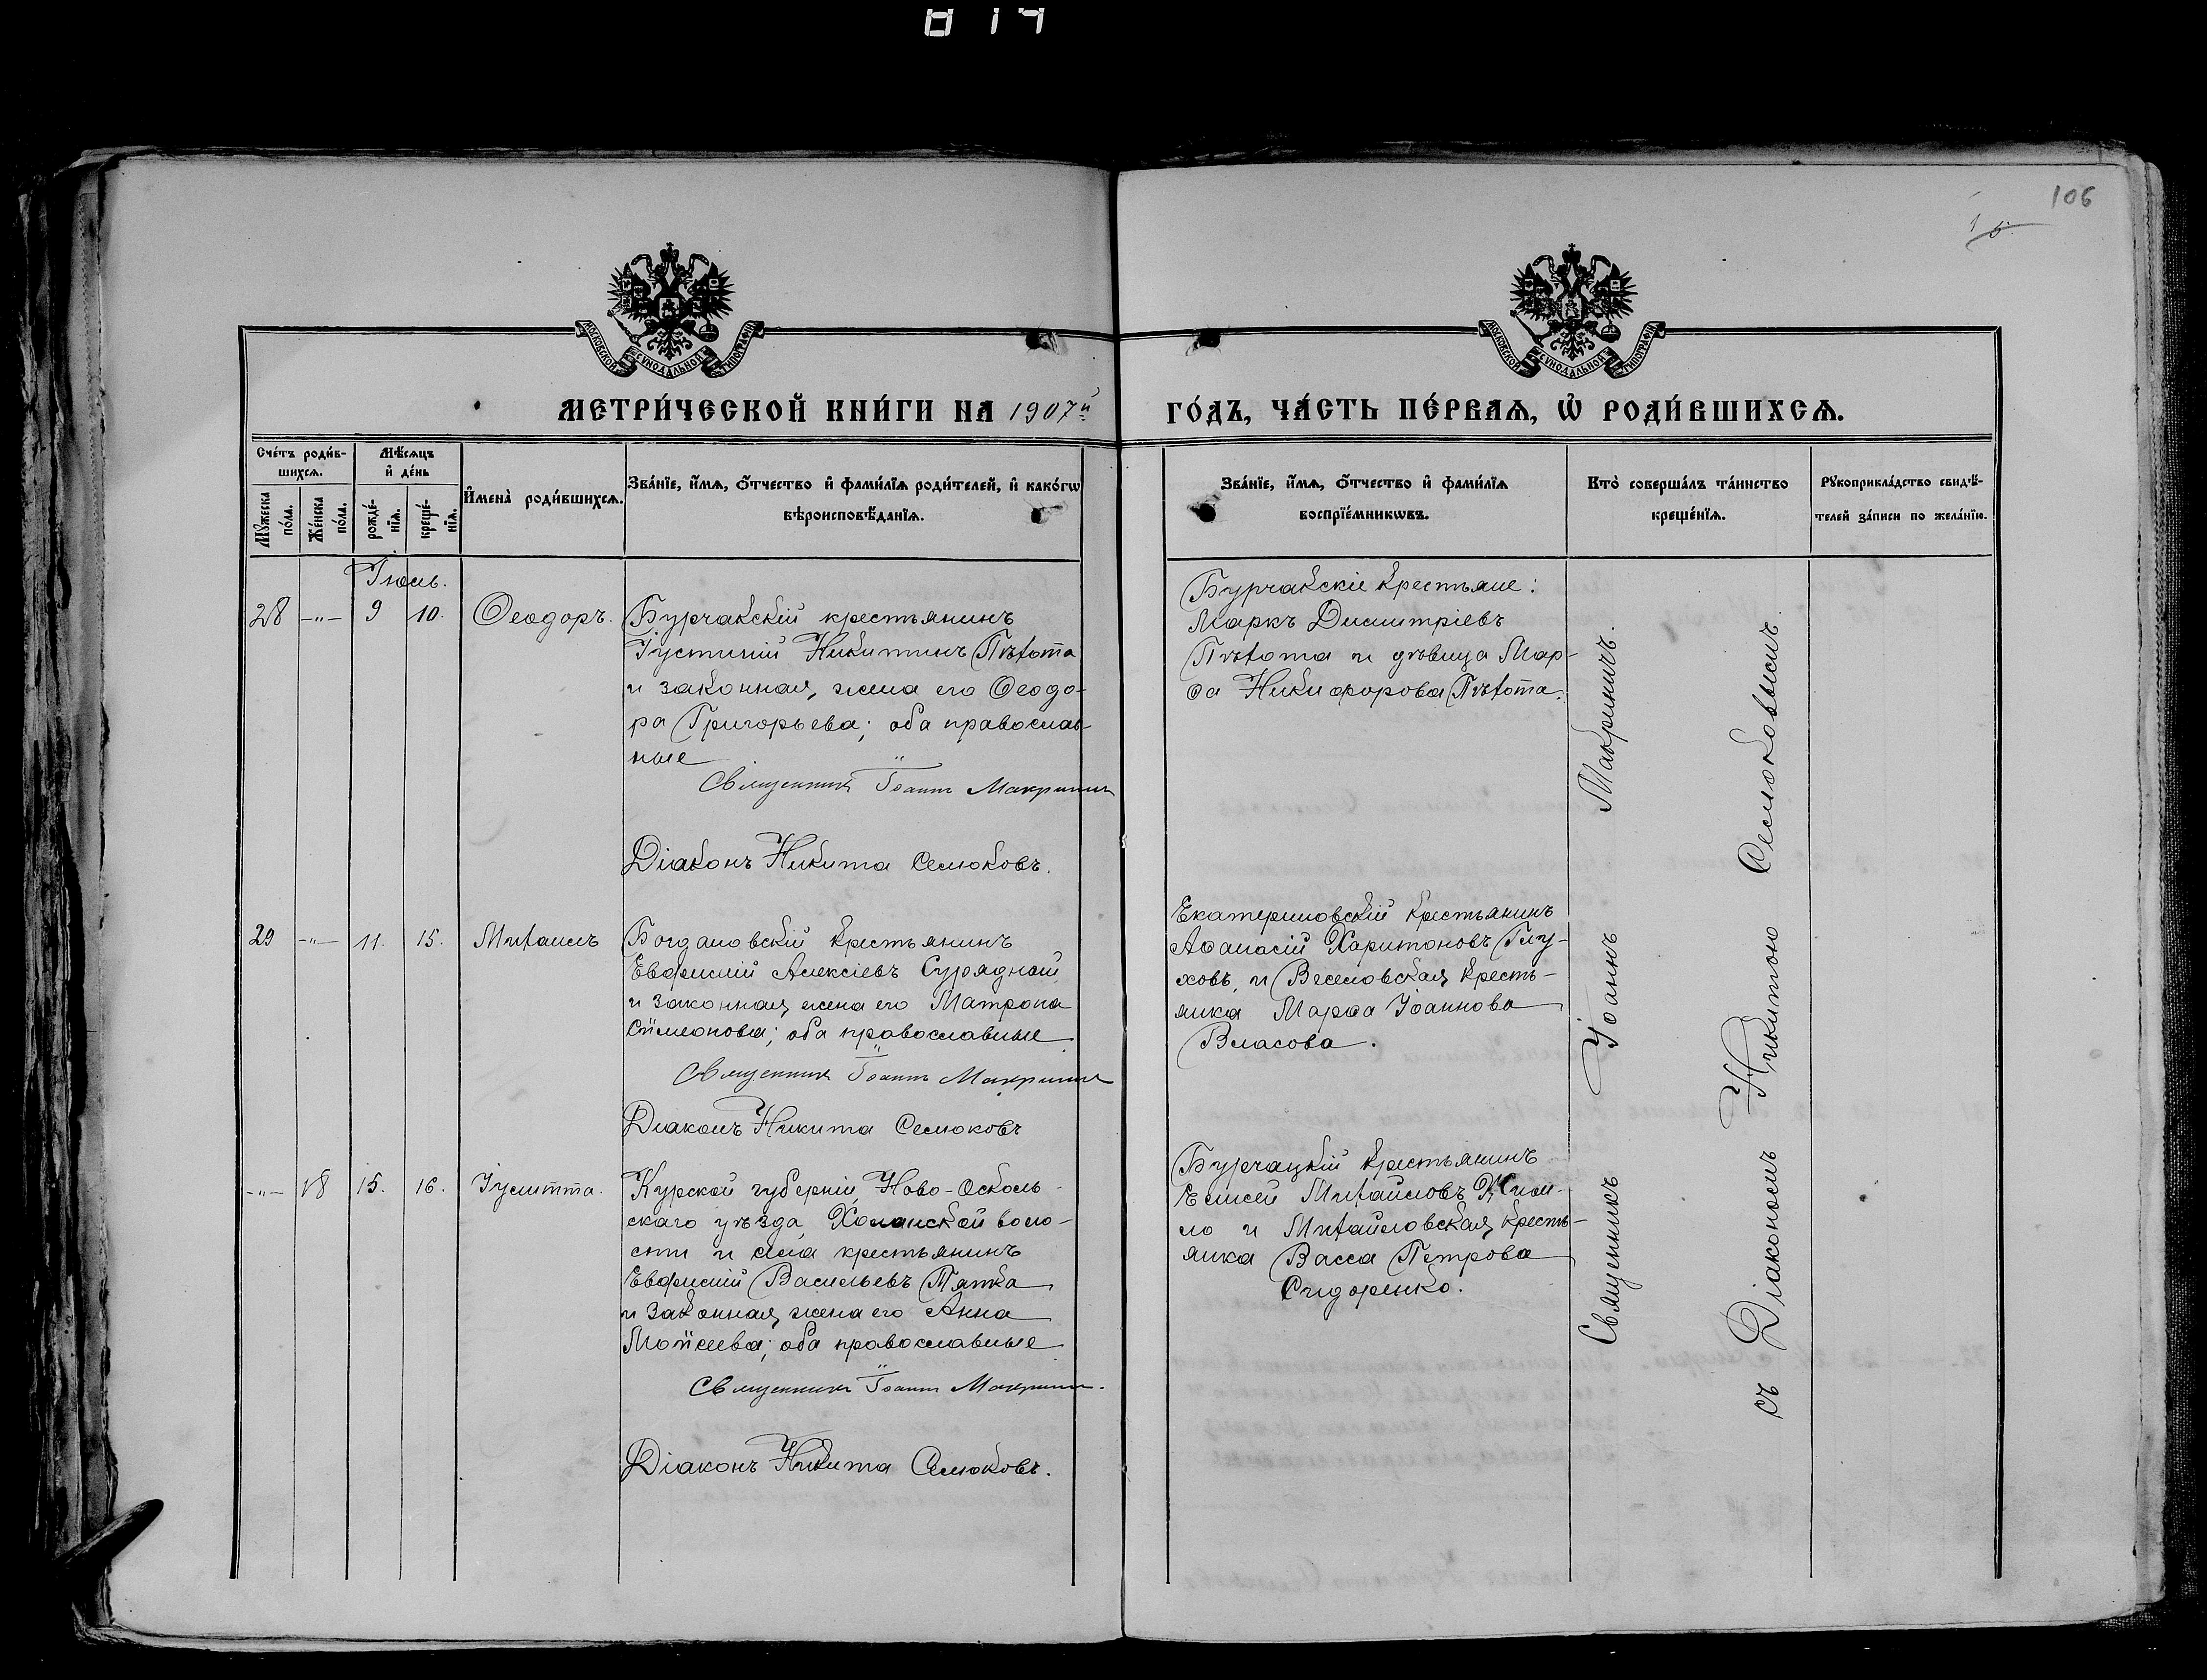 106
МОСКОВСКОЙ СУНОДАЛЬНОЙ ТИПОГРАФІИ
МОСКОВСКОЙ СУНОДАЛЬНОЙ ТИПОГРАФІИ
МЕТРИ́ЧЕСКОЙ КНИ́ГИ НА 1907й
ГО́ДЪ, ЧА́СТЬ ПЕ́РВАЯ, Ѿ РОДИ́ВШИХСЯ.
Сче́тъ роди́в-
шихся.
Мѣ́сяцъ
и҆ де́нь
Му́жеска
по́ла.
Же́нска
по́ла.
рожде́-
нїя.
креще́-
нїя.
И҆мена̀ роди́вшихся.
Зва́нїе, и҆́мя, ѻ҆́тчество и҆ фами́лїя роди́телей, и҆ како́гѡ
вѣроисповѣ́данїя.
Зва́нїе, и҆́мя, ѻ҆́тчество и҆ фами́лїя
воспрїе́мникѡвъ.
Кто̀ соверша́лъ та́инство
креще́нїя.
Рꙋкоприкла́дство свидѣ́-
телей за́писи по жела́нїю.
Іюль.
28 -"- 9 10. Ѳеодоръ.
Бурчакскій крестьянинъ
Іустиній Никитинъ Пѣхота
и законная жена его Ѳеодо-
ра Григорьева; оба православ-
ные
Священникъ Іоаннъ Макринич
Діаконъ Никита Семоковъ.
Бурчакскіе крестьяне:
Маркъ Димитріевъ
Пѣхота и дѣвица Мар-
ѳа Никифорова Пѣхота.
29 -"- 11. 15. Михаилъ
Богдановскій крестьянинъ
Евфимій Алексіевъ Сурядный
и законная жена его Матрона
Сѷмеонова; оба православные
Священникъ Іоаннъ Макринич
Діаконъ Никита Семоковъ
Екатериновскій крестьянинъ
Аѳанасій Харитоновъ Глу-
ховъ, и Веселовская кресть-
янка Марѳа Іоаннова
Власова.
-"- 18 15. 16. Іулитта.
Курской губерніи, Ново-Осколь-
скаго уѣзда, Холанской воло-
сти и села крестьянинъ
Евфимій Васильевъ Пятка
и законная жена его Анна
Моѷсеева; оба православные
Священникъ Іоаннъ Макринич.
Діаконъ Никита Семоковъ.
Бурчацкій крестьянинъ
Елисей Михайловъ
и Михайловская кресть-
янка Васса Петрова
Сидоренко.
Священникъ Іоаннъ Макриничъ.
съ Діакономъ Никитою Семоковымъ.